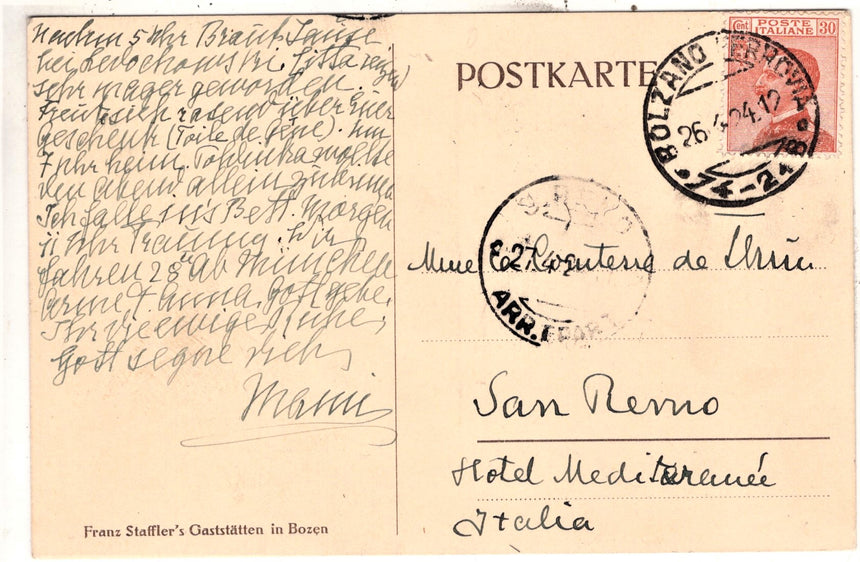 nachm 5 Uhr Braut Jause
bei Ledochowski.
sehr mager geworden.
Freut sich rasend über Euer
Geschenk (Toile de Gêne). um
7 Uhr heim.
den Abend allein
Ich falle ins Bett. Morgen
11 Uhr Trauung. Wir
fahren 28ten Ab München
arme + Anna. Gott gebe
Ihr
Gott segne Dich
Mami
Franz Staffler's Gaststätten in Bozen
POSTKARTE
Cent POSTE ITALIANE 30
BOLZANO FERROVIA
26.4.24.12
74-248
27.4.2
ARR.
Mme la Comtesse de
San Remo
Hotel Mediterranée
Italia